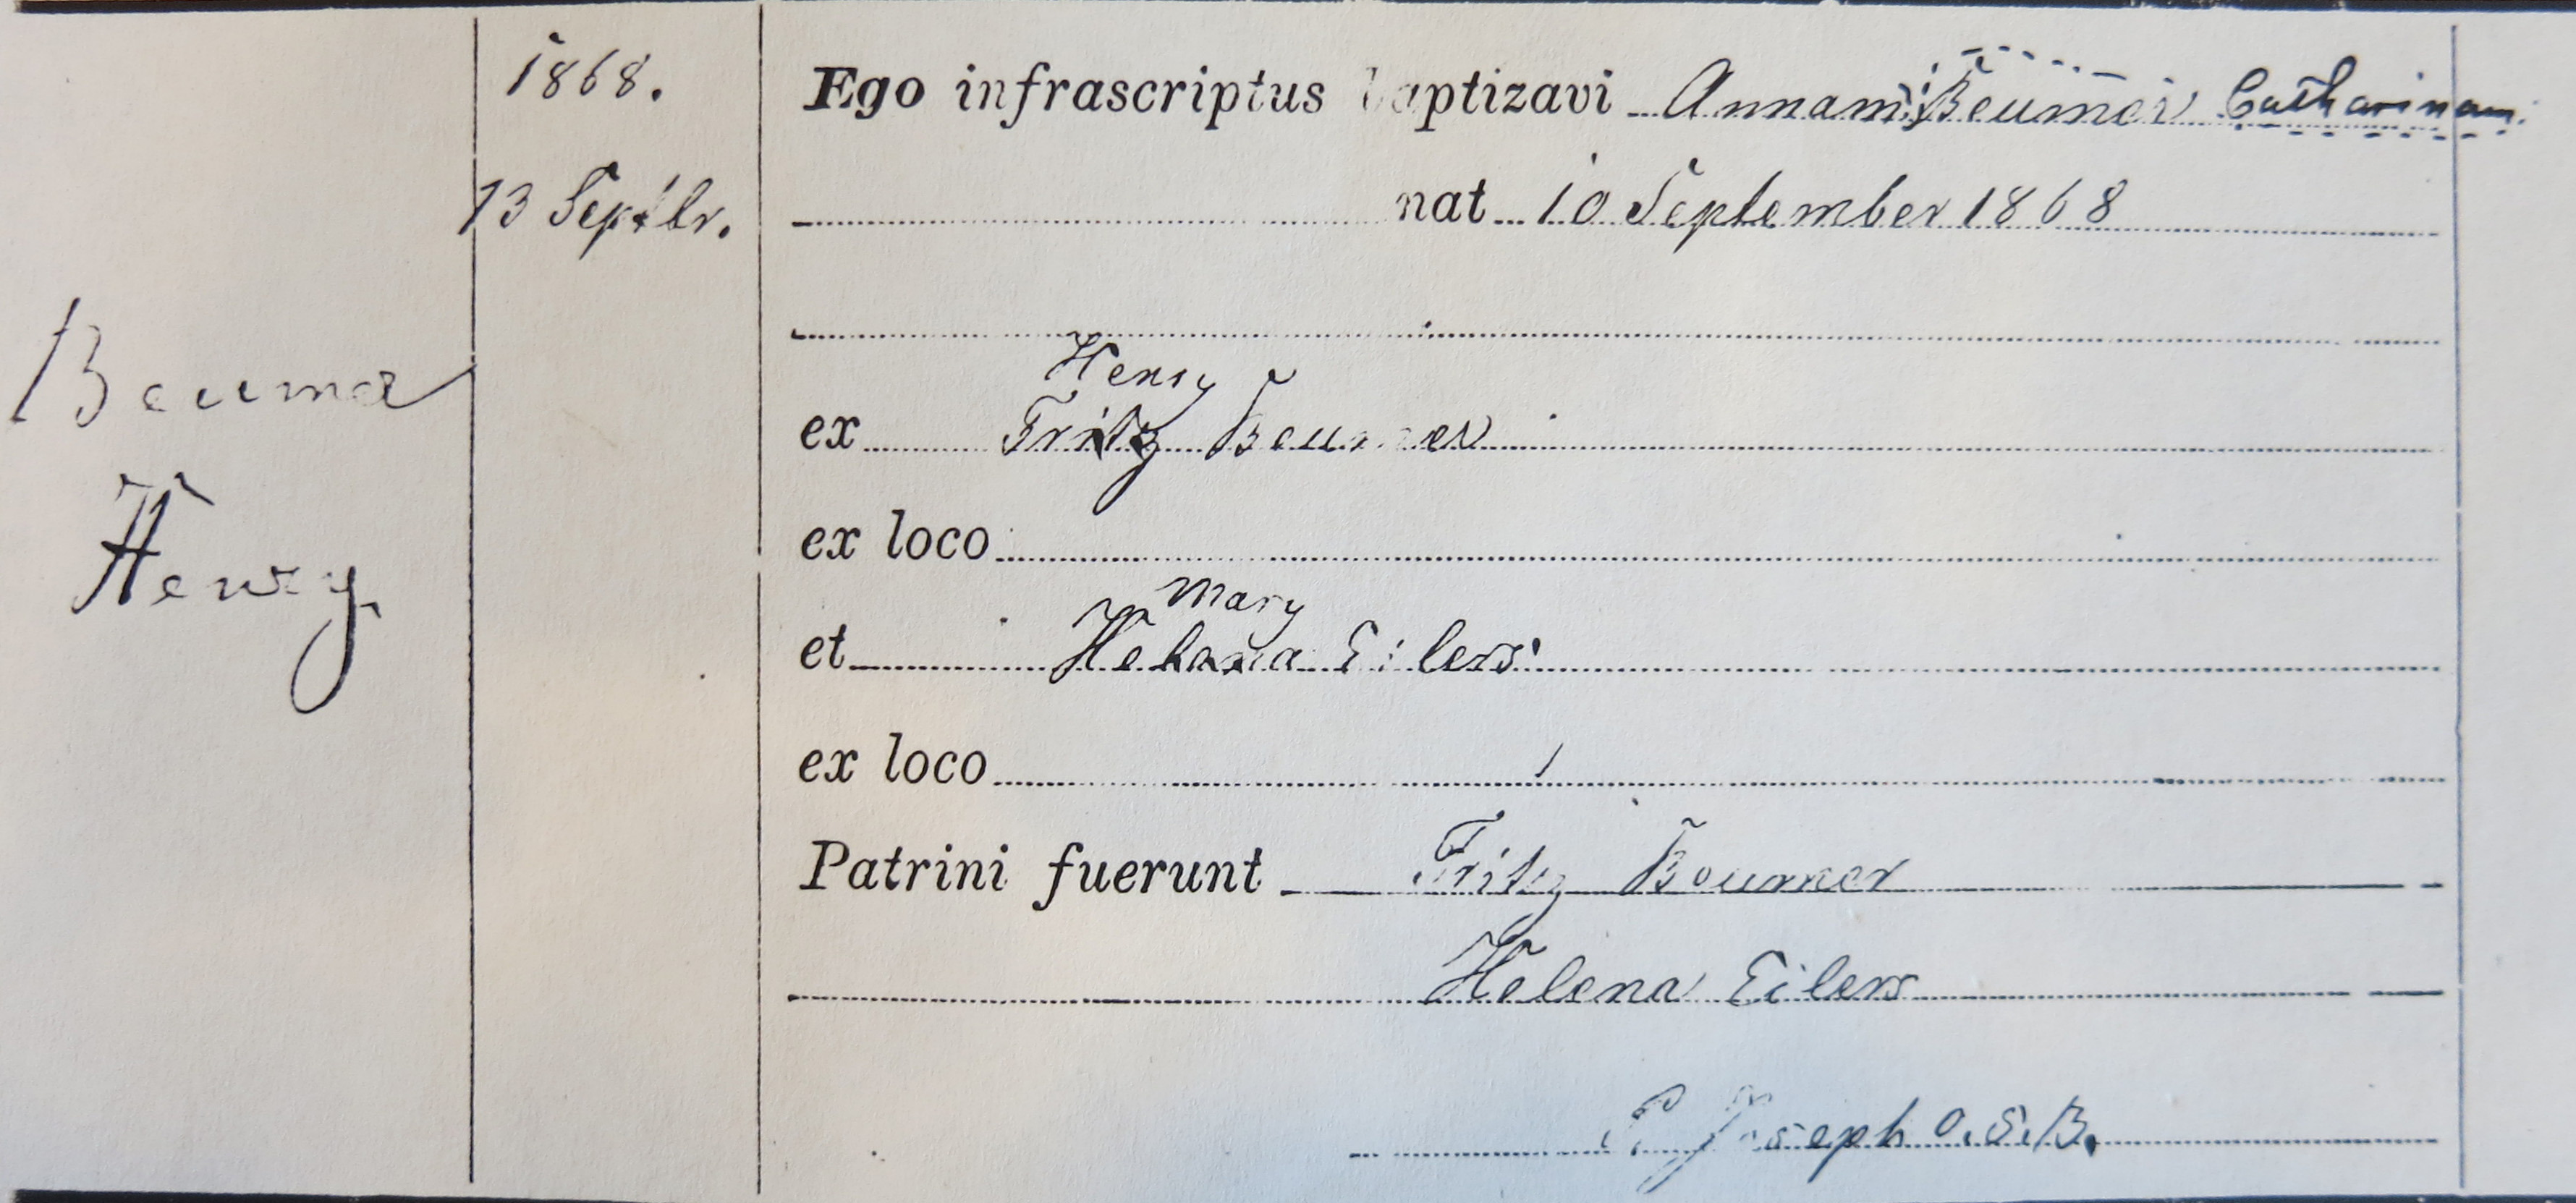 1868.
Ego infrascriptus baptizavi Annam Beumer Catharinam.
13 Septbr.
nat 10 September 1868
Beumer
Henry
Henry
ex Fritz Beumer
ex loco
Mary
et Helena Eilers
ex loco
Patrini fuerunt Fritz Boumer
Helena Eilers
P. Joseph O.S.B.